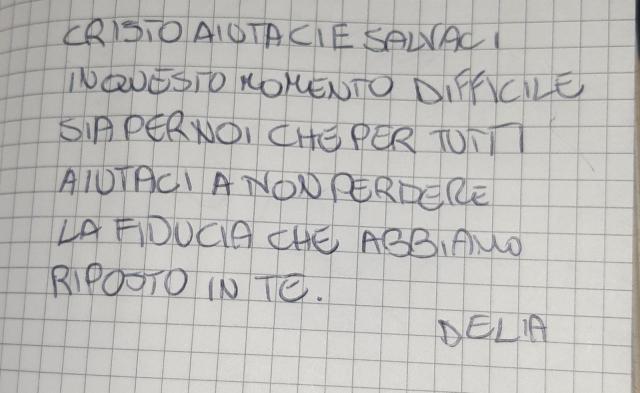 CRISTO AIUTACI E SALVACI
IN QUESTO MOMENTO DIFFICILE
SIA PER NOI CHE PER TUTTI
AIUTACI A NON PERDERE
LA FIDUCIA CHE ABBIAMO
RIPOSTO IN TE.
DELIA